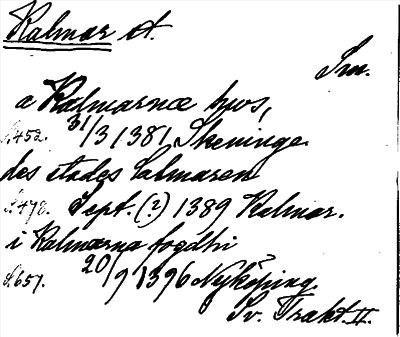 Kalmar st.
Sm.
a Kalmarnæ hws,
S.452. 31/3 1381 Skeninge.
des stades Calmaren
S.478. Sept. (?) 1389 Kalmar.
i Kalmarna fogdhi
S.657. 20/9 1396 Nyköping.
Sv. Trakt. II.